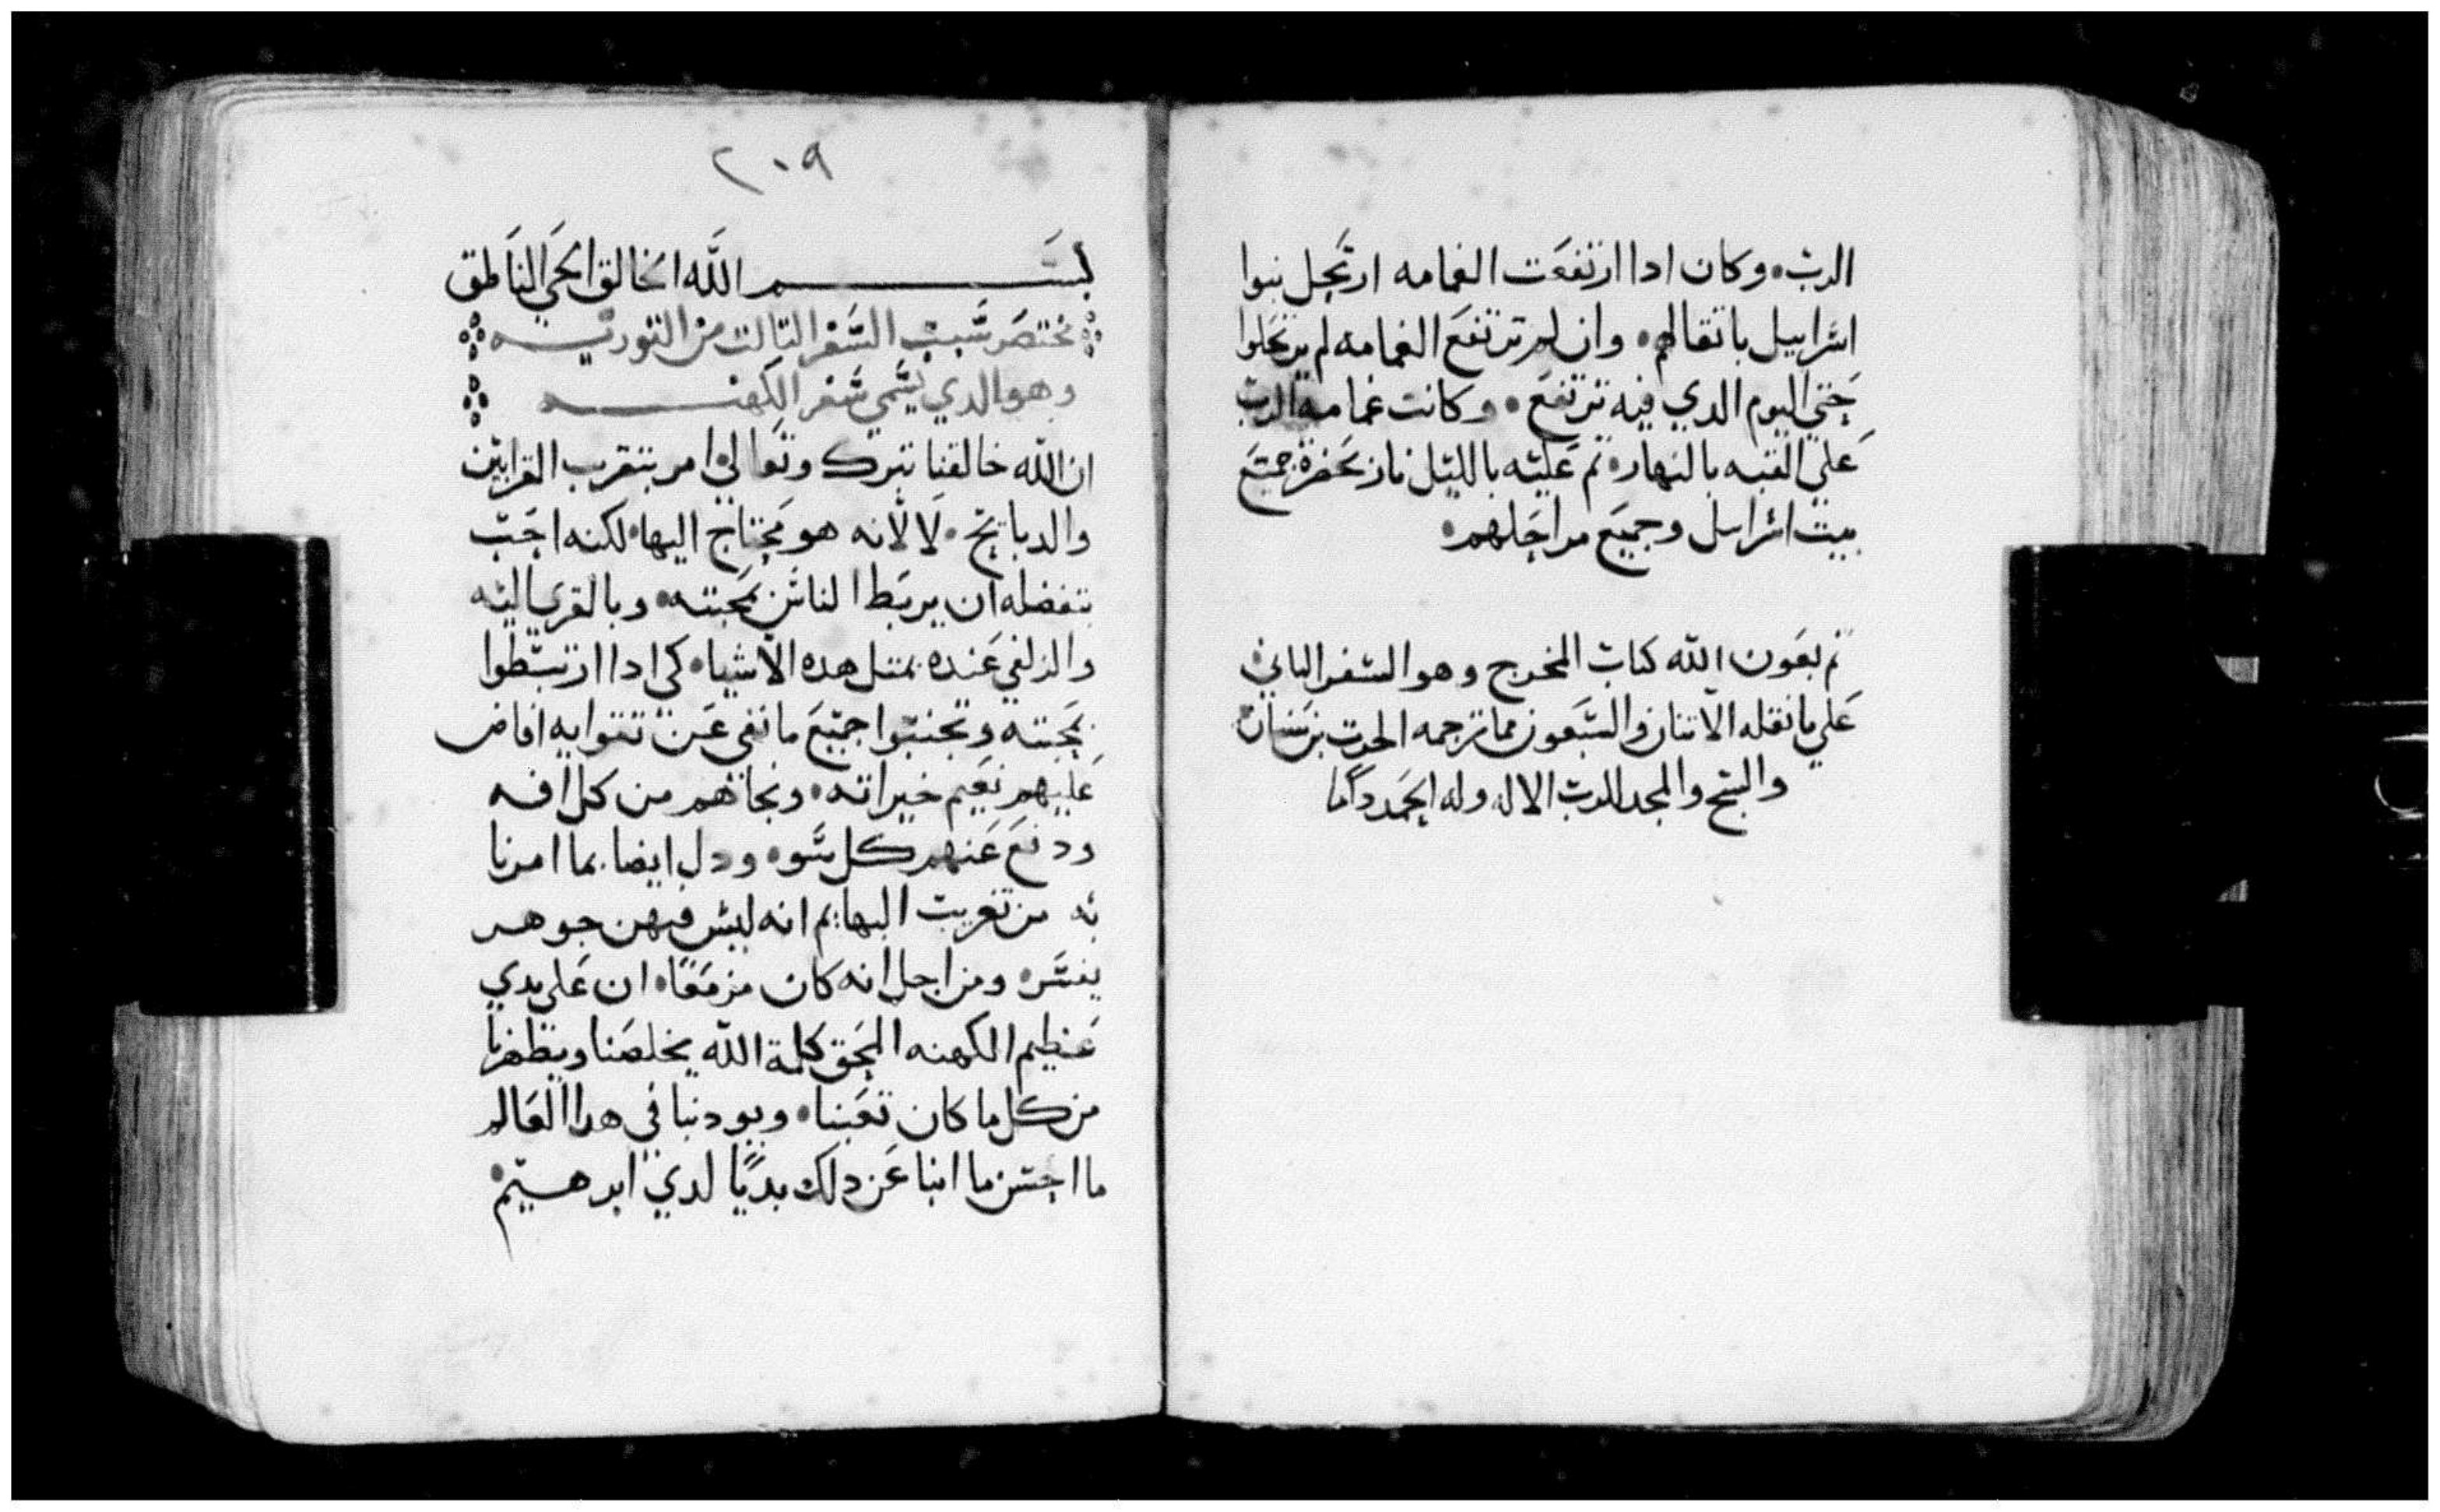 الرب٠ وكان ادا ارتفعت الغمامه ارتحل بنوا
اسراييل باتقالهم٠ وان لم ترتفع الغمامه لم يرتحلوا
حتي اليوم الدي فيه ترتفع٠ وكانت غمامة الرب
علي القبه بالنهار٠ تم عليه بالليل نار بحضرة جميع
بيت اسراييل وجميع مراحلهم٠
تم بعون الله كتاب المخرج وهو السفر التاني
علي ما نقله الاتنان والسبعون مما ترجمه الحرت بن سنان
والسبح والمجد للرب الاله وله الحمد داما
٢٠٩
بسم الله الخالق الحي الناطق
مختصر سبب السفر التالت من التوريه
وهو الدي يسمي سفر الكهنه
ان الله خالقنا تبرك وتعالي امر بتقرب القرابين
والدبايح٠ لا لانه هو محتاج اليها٠ لكنه احب
بتفضله ان يربط الناس بمحبته٠ وبالقرب اليه
والزلفي عنده بمتل هده الاشيا٠ كي ادا ارتبطوا
بمحبته وتجنبوا جميع ما نفي عن تقوايه افاض
عليهم نعيم خيراته٠ ونجاهم من كل افه
ودفع عنهم كل سو٠ ودل ايضا بما امرنا
به من تقريب البهايم انه ليس فيهن جوهر
يفسر٠ ومن اجل انه كان مزمعا٠ ان علي يدي
عظيم الكهنه المحق كلمة الله يخلصنا ويظفرنا
من كل ما كان تعبنا٠ ويودنيا في هدا العالم
ما احسن ما انبا عن دلك بديا لدي ابرهيم٠